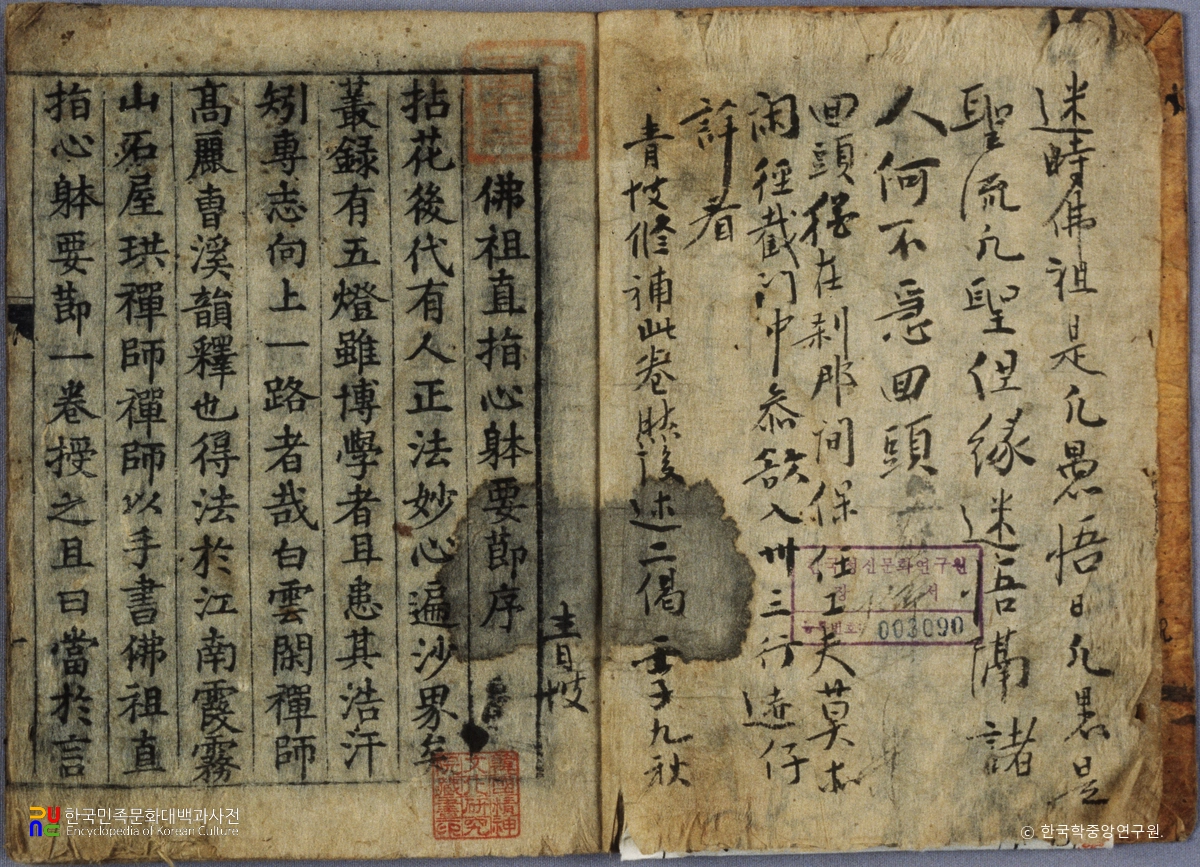 迷時佛祖是凡愚悟日凡愚是
聖流凡聖但緣迷吾隔諸
人何不急回頭
回頭在刹那间保任工夫莫
闲徑截门中叅入卅三行仔
詳看
青坡修補此卷後述二偈 壬子九秋
한국정신문화연구원
장서
등록번호 003090
青坡
佛祖直指心躰要莭序
拈花後代有人正法妙心遍沙界矣
叢録有五燈雖博學者且患其浩汗
矧專志向上一路者哉白雲閑禪師
髙麗曺溪韻釋也得法於江南霞霧
山石屋珙禪師禪師以手書佛祖直
指心躰要莭一卷授之且曰當於言
韓國精神
文化研究
院藏書印
한국민족문화대백과사전
Encyclopedia of Korean Culture
© 한국학중앙연구원.